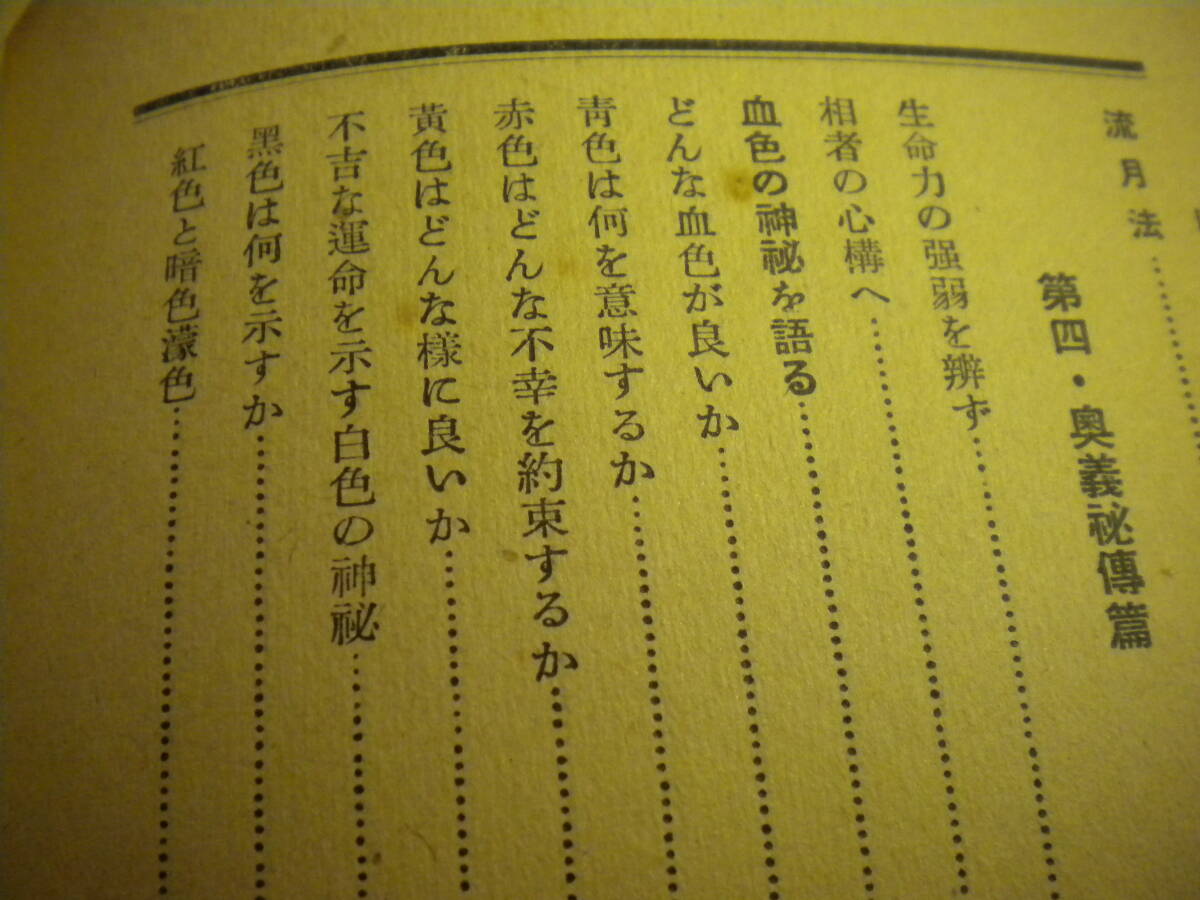 流月法
第四・奥義祕傳篇
生命力の强弱を辨ず
相者の心構へ
血色の神祕を語る
どんな血色が良いか
靑色は何を意味するか
赤色はどんな不幸を約束するか
黄色はどんな樣に良いか
不吉な運命を示す白色の神祕
黑色は何を示すか
紅色と暗色濛色